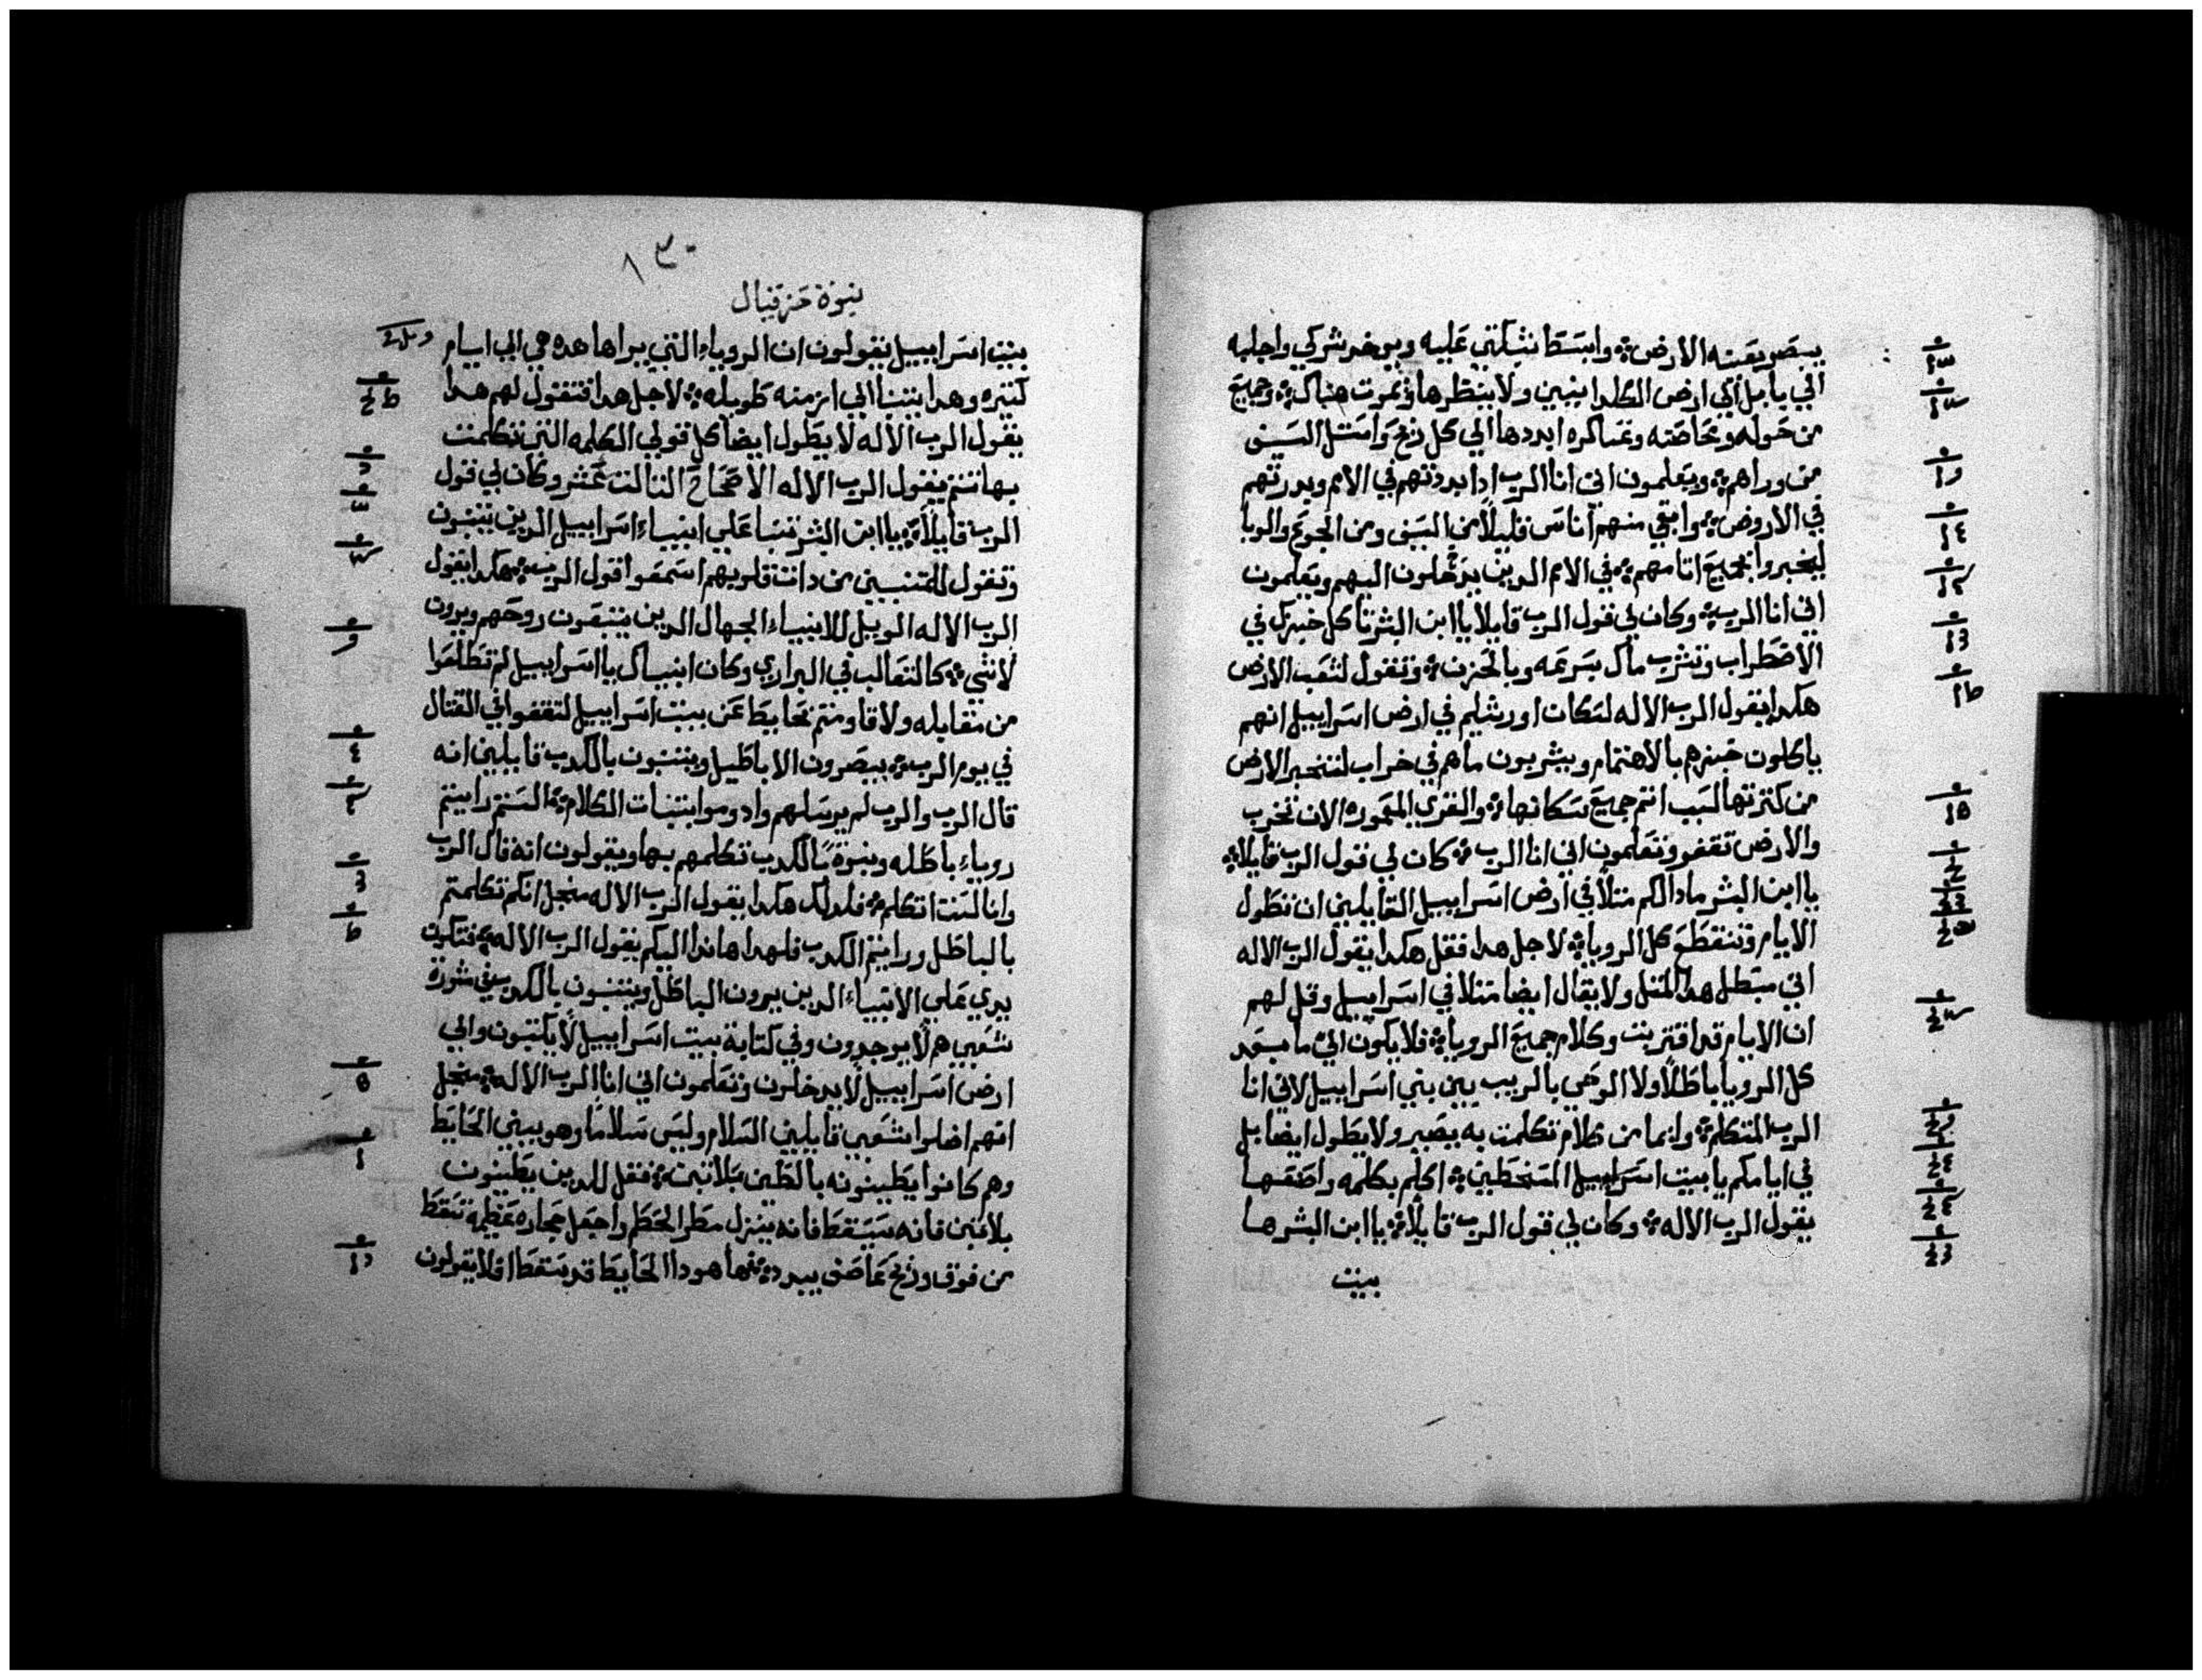 يبصر بعينه الارض وابسط شبكتي عليه ويوخد بشركي واجلبه
الي بابل الي ارض الكلدانيين ولا ينظرها ويموت هناك وجميع
من حوله ومحاصته وعساكره ابددها الي كل ريح واستل السيف
من وراهم ويعلمون اني انا الرب ادا بددتهم في الامم وبدرتهم
في الاروض وابقي منهم اناس قليلاً من السيف ومن الجوع والوبا
ليخبروا بجميع اتامهم في الامم الدين يدخلون اليهم ويعلمون
اني انا الرب وكان لي قول الرب قايلا يا ابن البشر تاكل خبزك في
الاضطراب وتشرب ماك بسرعه وبالحزن وتقول لشعب الارض
هكدا يقول الرب الاله لسكان اورشليم في ارض اسراييل انهم
ياكلون خبزهم بالاهتمام ويشربون ماهم في خراب لتتحير الارض
من كترتها لسبب اتم جميع سكانها والقري المعموره الان تخرب
والارض تقفر وتعلمون اني انا الرب كان لي قول الرب قايلاً
يا ابن البشر مادا لكم متلاً في ارض اسراييل القايلين ان تطول
الايام وتنقطع كل الرويا لاجل هدا فقل هكدا يقول الرب الاله
اني مبطل هدا المتل ولا يقال ايضا متلا في اسراييل وقل لهم
ان الايام قد اقتربت وكلام جميع الرويا فلا يكون الي ما بعد
كل الرويا باطلاً ولا الوحي بالريب بين بني اسراييل لاني انا
الرب المتكلم وايما من كلام تكلمت به يصير ولا يطول ايضا بل
في ايامكم يا بيت اسراييل المسخطين اكلم بكلمه واصنعها
يقول الرب الاله وكان لي قول الرب قايلاً يا ابن البشر ها
بيت
٨٣٠
نبوة حزقيال
بيت اسراييل يقولون ان الروياء التي يراها هده هي الي ايام
كتيره وهدا يتنبا الي ازمنه طويله لاجل هدا فتقول لهم هدا
يقول الرب الاله لا يطول ايضا كل قولي الكلمه التي تكلمت
بها تتم يقول الرب الاله الاصحاح التالت عشر وكان لي قول
الرب قايلاً يا ابن البشر تنبا علي انبياء اسراييل الدين يتنبون
وتقول للمتنبيين من دات قلوبهم اسمعوا قول الرب هكدا يقول
الرب الاله الويل للانبياء الجهال الدين يتبعون روحهم ويرون
لاشي كالتعالب في البراري وكان انبياك يا اسراييل لم تطلعوا
من مقابله ولا قاومتم بحايط عن بيت اسراييل لتقفوا في القتال
في يوم الرب يبصرون الاباطيل ويتنبون بالكدب قايلين انه
قال الرب والرب لم يرسلهم وادوموا بتبات الكلام الستم رايتم
روياء باطله ونبوة بالكدب تكلمهم بها ويقولون انه قال الرب
وانا لست اتكلم فلدلك هكدا يقول الرب الاله منجل انكم تكلمتم
بالباطل ورايتم الكدب فلهدا هاندا اليكم يقول الرب الاله فتكون
يدي علي الانبياء الدين يرون الباطل ويتنبون بالكدب في شورة
شعبي هم لا يوجدون وفي كتابة بيت اسراييل لا يكتبون والي
ارض اسراييل لا يدخلون وتعلمون اني انا الرب الاله منجل
انهم اضلوا شعبي قايلين السلام وليس سلاما وهو يبني الحايط
وهم كانوا يطينونه بالطين بلا تبن فقل للدين يطينون
بلا تبن فانه سيسقط فانه ينزل مطر الحطم واجعل حجاره عظيمه تسقط
من فوق وريح عاصف يبدد فها هودا الحايط قد يسقط افلا يقولون